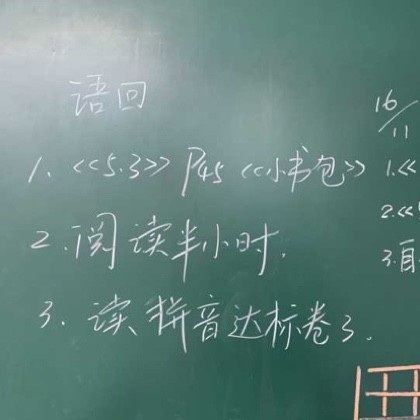 语回
1. <<5.3>> P45 <<小书包>>
2. 阅读半小时.
3. 读拼音达标卷3.
16/11
1.<<
2.<<
3.自